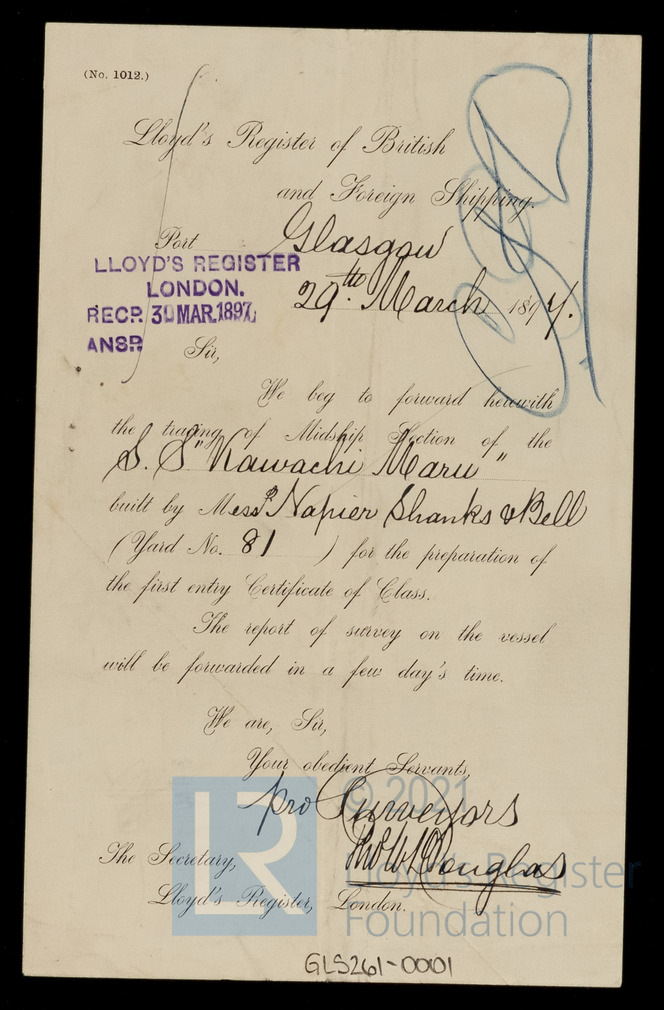 (No. 1012.)
Lloyd's Register of British
and Foreign Shipping.
Port Glasgow
LLOYD'S REGISTER
LONDON.
RECP. 30 MAR. 1897
ANSD
29th. March 1897.
Sir,
We beg to forward herewith
the tracing of Midship Section of the
S. S "Kawachi Maru"
built by Messrs Napier Shanks & Bell
(Yard No. 81 ) for the preparation of
the first entry Certificate of Class.
The report of survey on the vessel
will be forwarded in a few day's time.
We are, Sir,
Your obedient Servants,
pro Surveyors
Douglas
The Secretary,
Lloyd's Register, London.
LR
© 2021
Lloyd's Register
Foundation
GLS261-0001